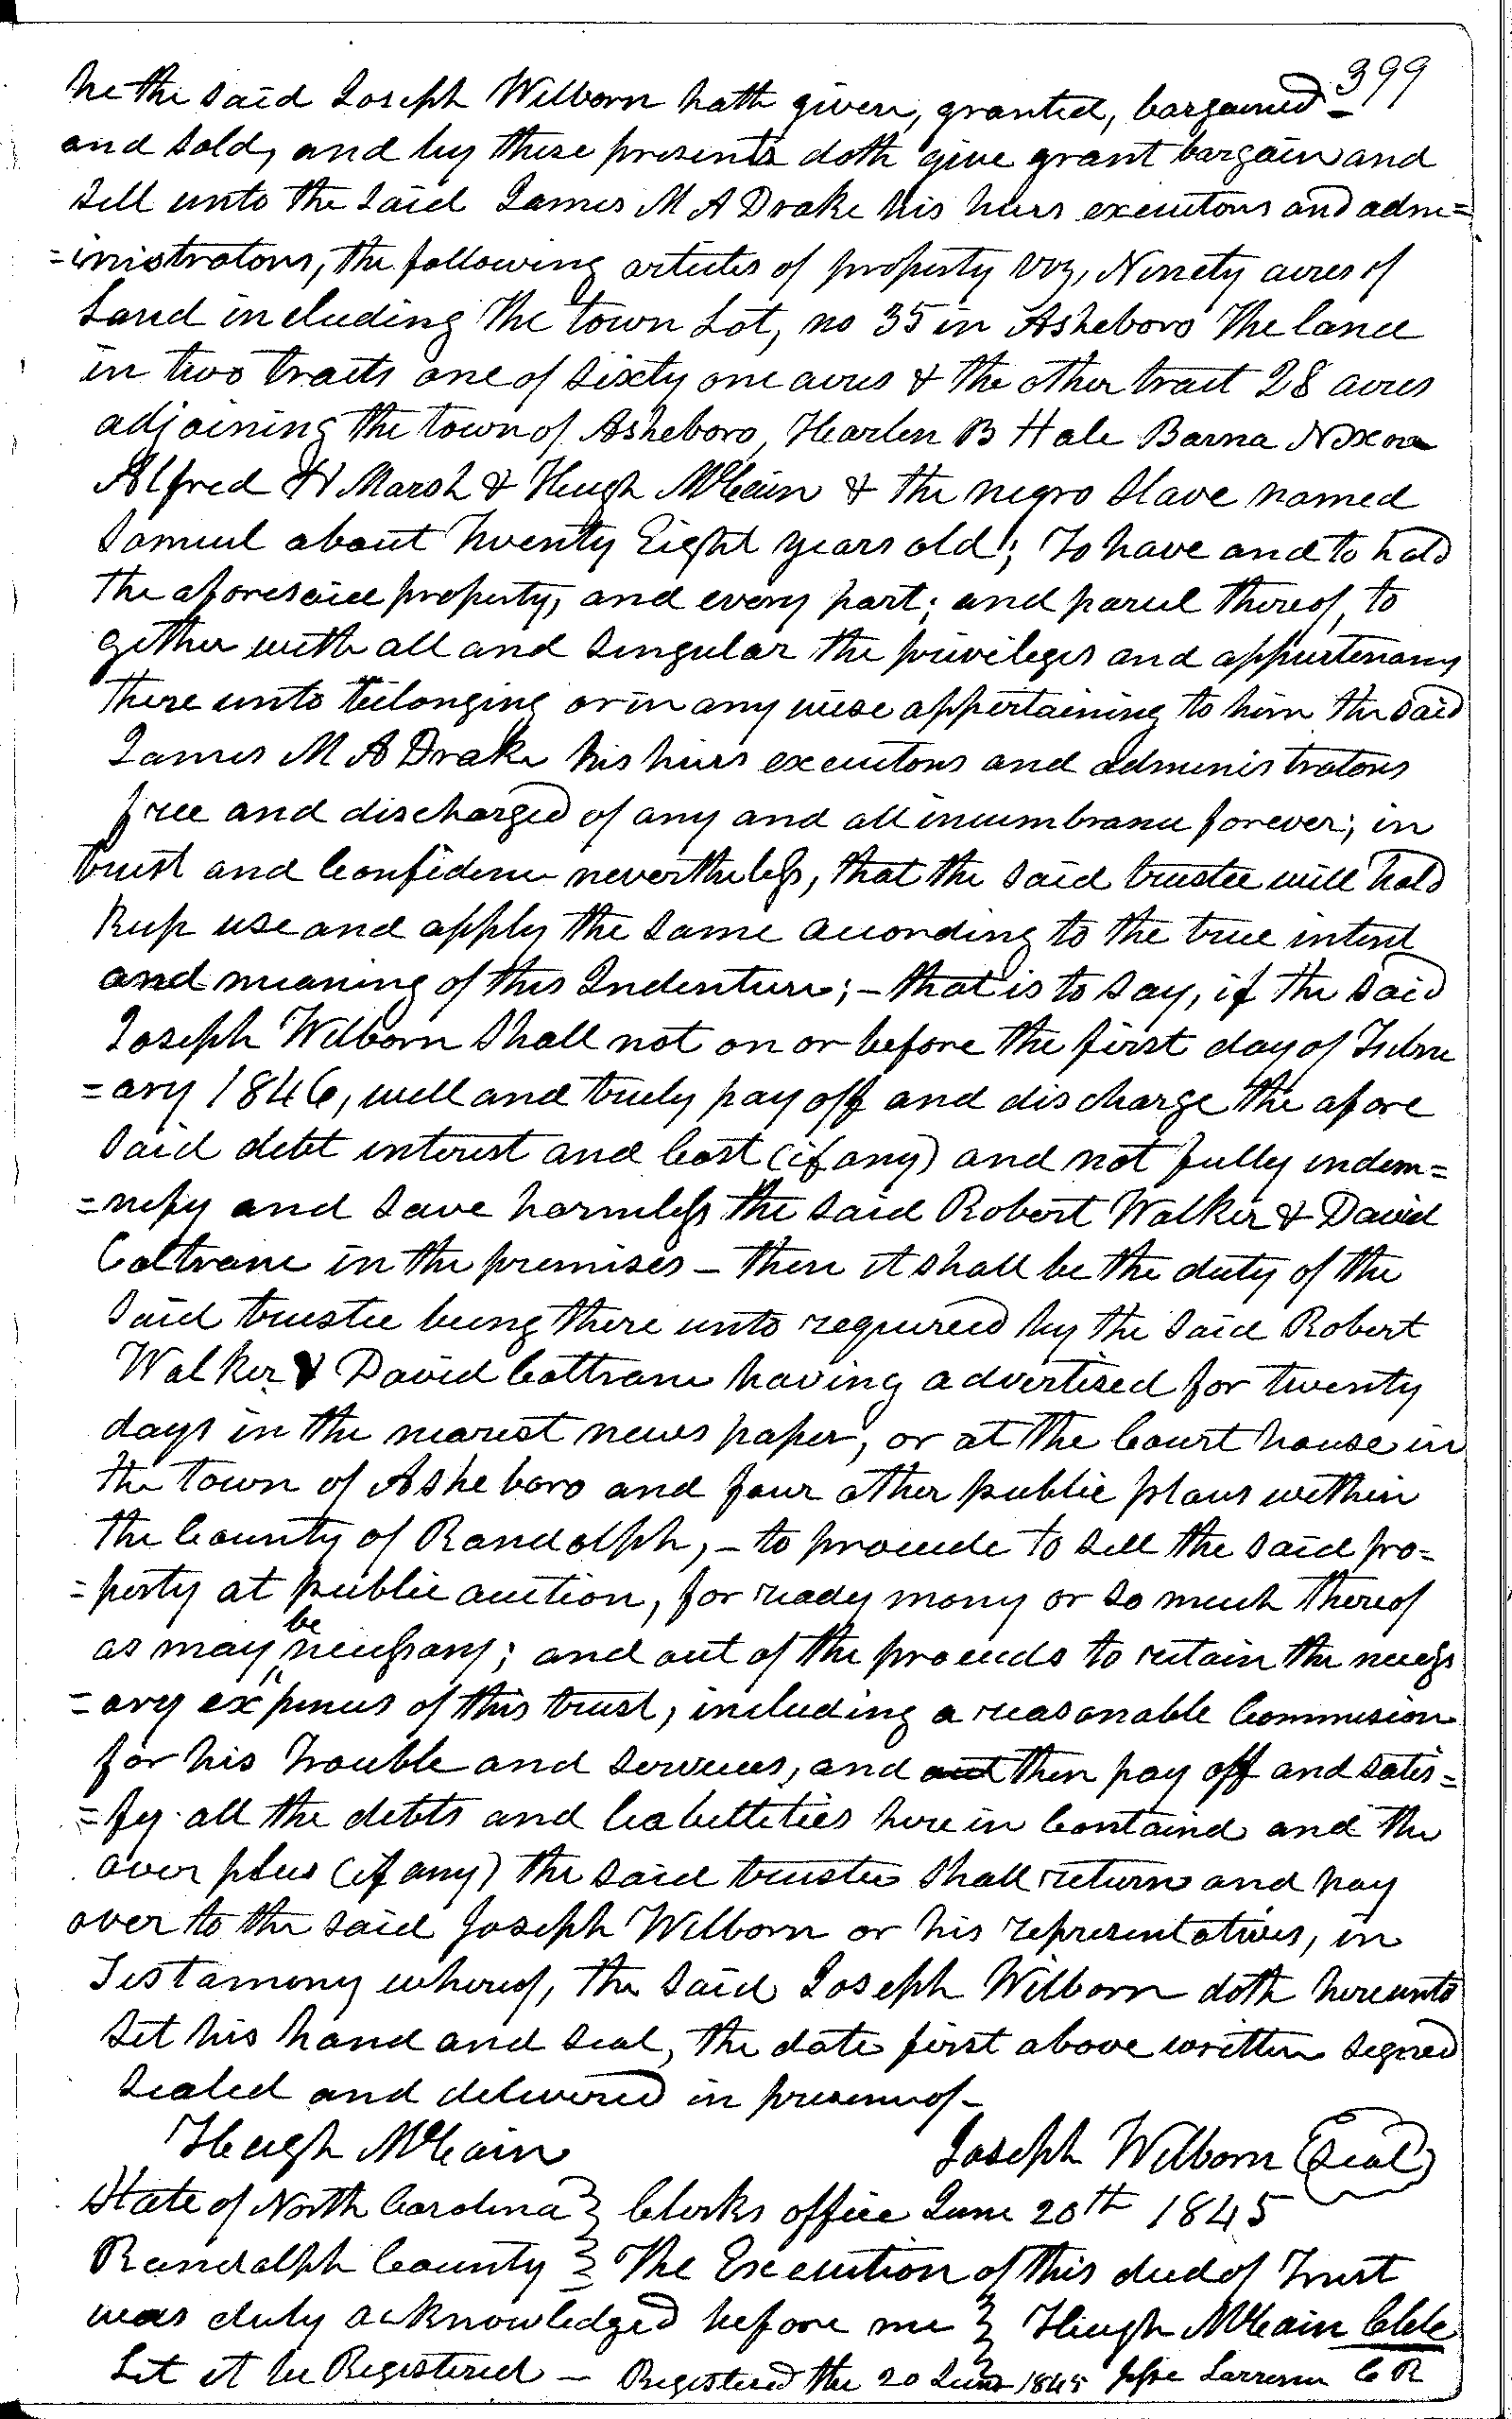 399
he the said Joseph Wilborn hath given, granted, bargained
and sold, and by these presents doth give grant bargain and
sell unto the said James M A Drake his heirs executors and adm=
=inistrators, the following articles of property viz, Ninety acres of
Land including the town Lot, no 35 in Asheboro The land
in two tracts one of sixty one acres & the other tract 28 acres
adjoining the town of Asheboro, Harlen B Hale Barna Nixon
Alfred H Marsh & Hugh McCain & the negro slave named
Samuel about Twenty Eight years old; To have and to hold
the aforesaid property, and every part; and parcel thereof, to
gether with all and singular the privileges and appurtenancy
there unto belonging or in any wise appertaining to him the said
James M A Drake his heirs executors and administrators
free and discharged of any and all incumbrance forever; in
trust and confidence nevertheless, that the said trustee will hold
keep use and apply the same according to the true intent
and meaning of this Indenture; – that is to say, if the said
Joseph Wilborn shall not on or before the first day of Febru
=ary 1846, well and truly pay off and discharge the afore
said debt interest and Cost (if any) and not fully indem=
=nify and save harmless the said Robert Walker & David
Coltrane in the premises – then it shall be the duty of the
said trustee being there unto required by the said Robert
Walker & David Coltrane having advertised for twenty
days in the nearest news paper, or at the Court house in
the town of Asheboro and four other public places within
the County of Randolph, – to proceede to sell the said pro=
=perty at public auction, for ready mony or so much thereof
as may be necessary; and out of the proceeds to retain the necess
=ary expences of this trust, including a reasonable Commision
for his trouble and services, and out then pay off and satis=
=fy all the debts and liabilleties herein Containd and the
over plus (if any) the said trustee shall return and pay
over to the said Joseph Wilborn or his representatives, in
Testamony whereof, the said Joseph Wilborn doth hereunto
set his hand and seal, the date first above written signed
sealed and delivered in presence of –
Hugh McCain Joseph Wilborn (Seal)
State of North Carolina } Clerks office June 20th 1845
Randolph County } The Execution of this deed of Trust
was duly acknowledged before me } Hugh McCain Clk
Let it be Registered – Registered the 20 June 1845 Jesse Larrence C R